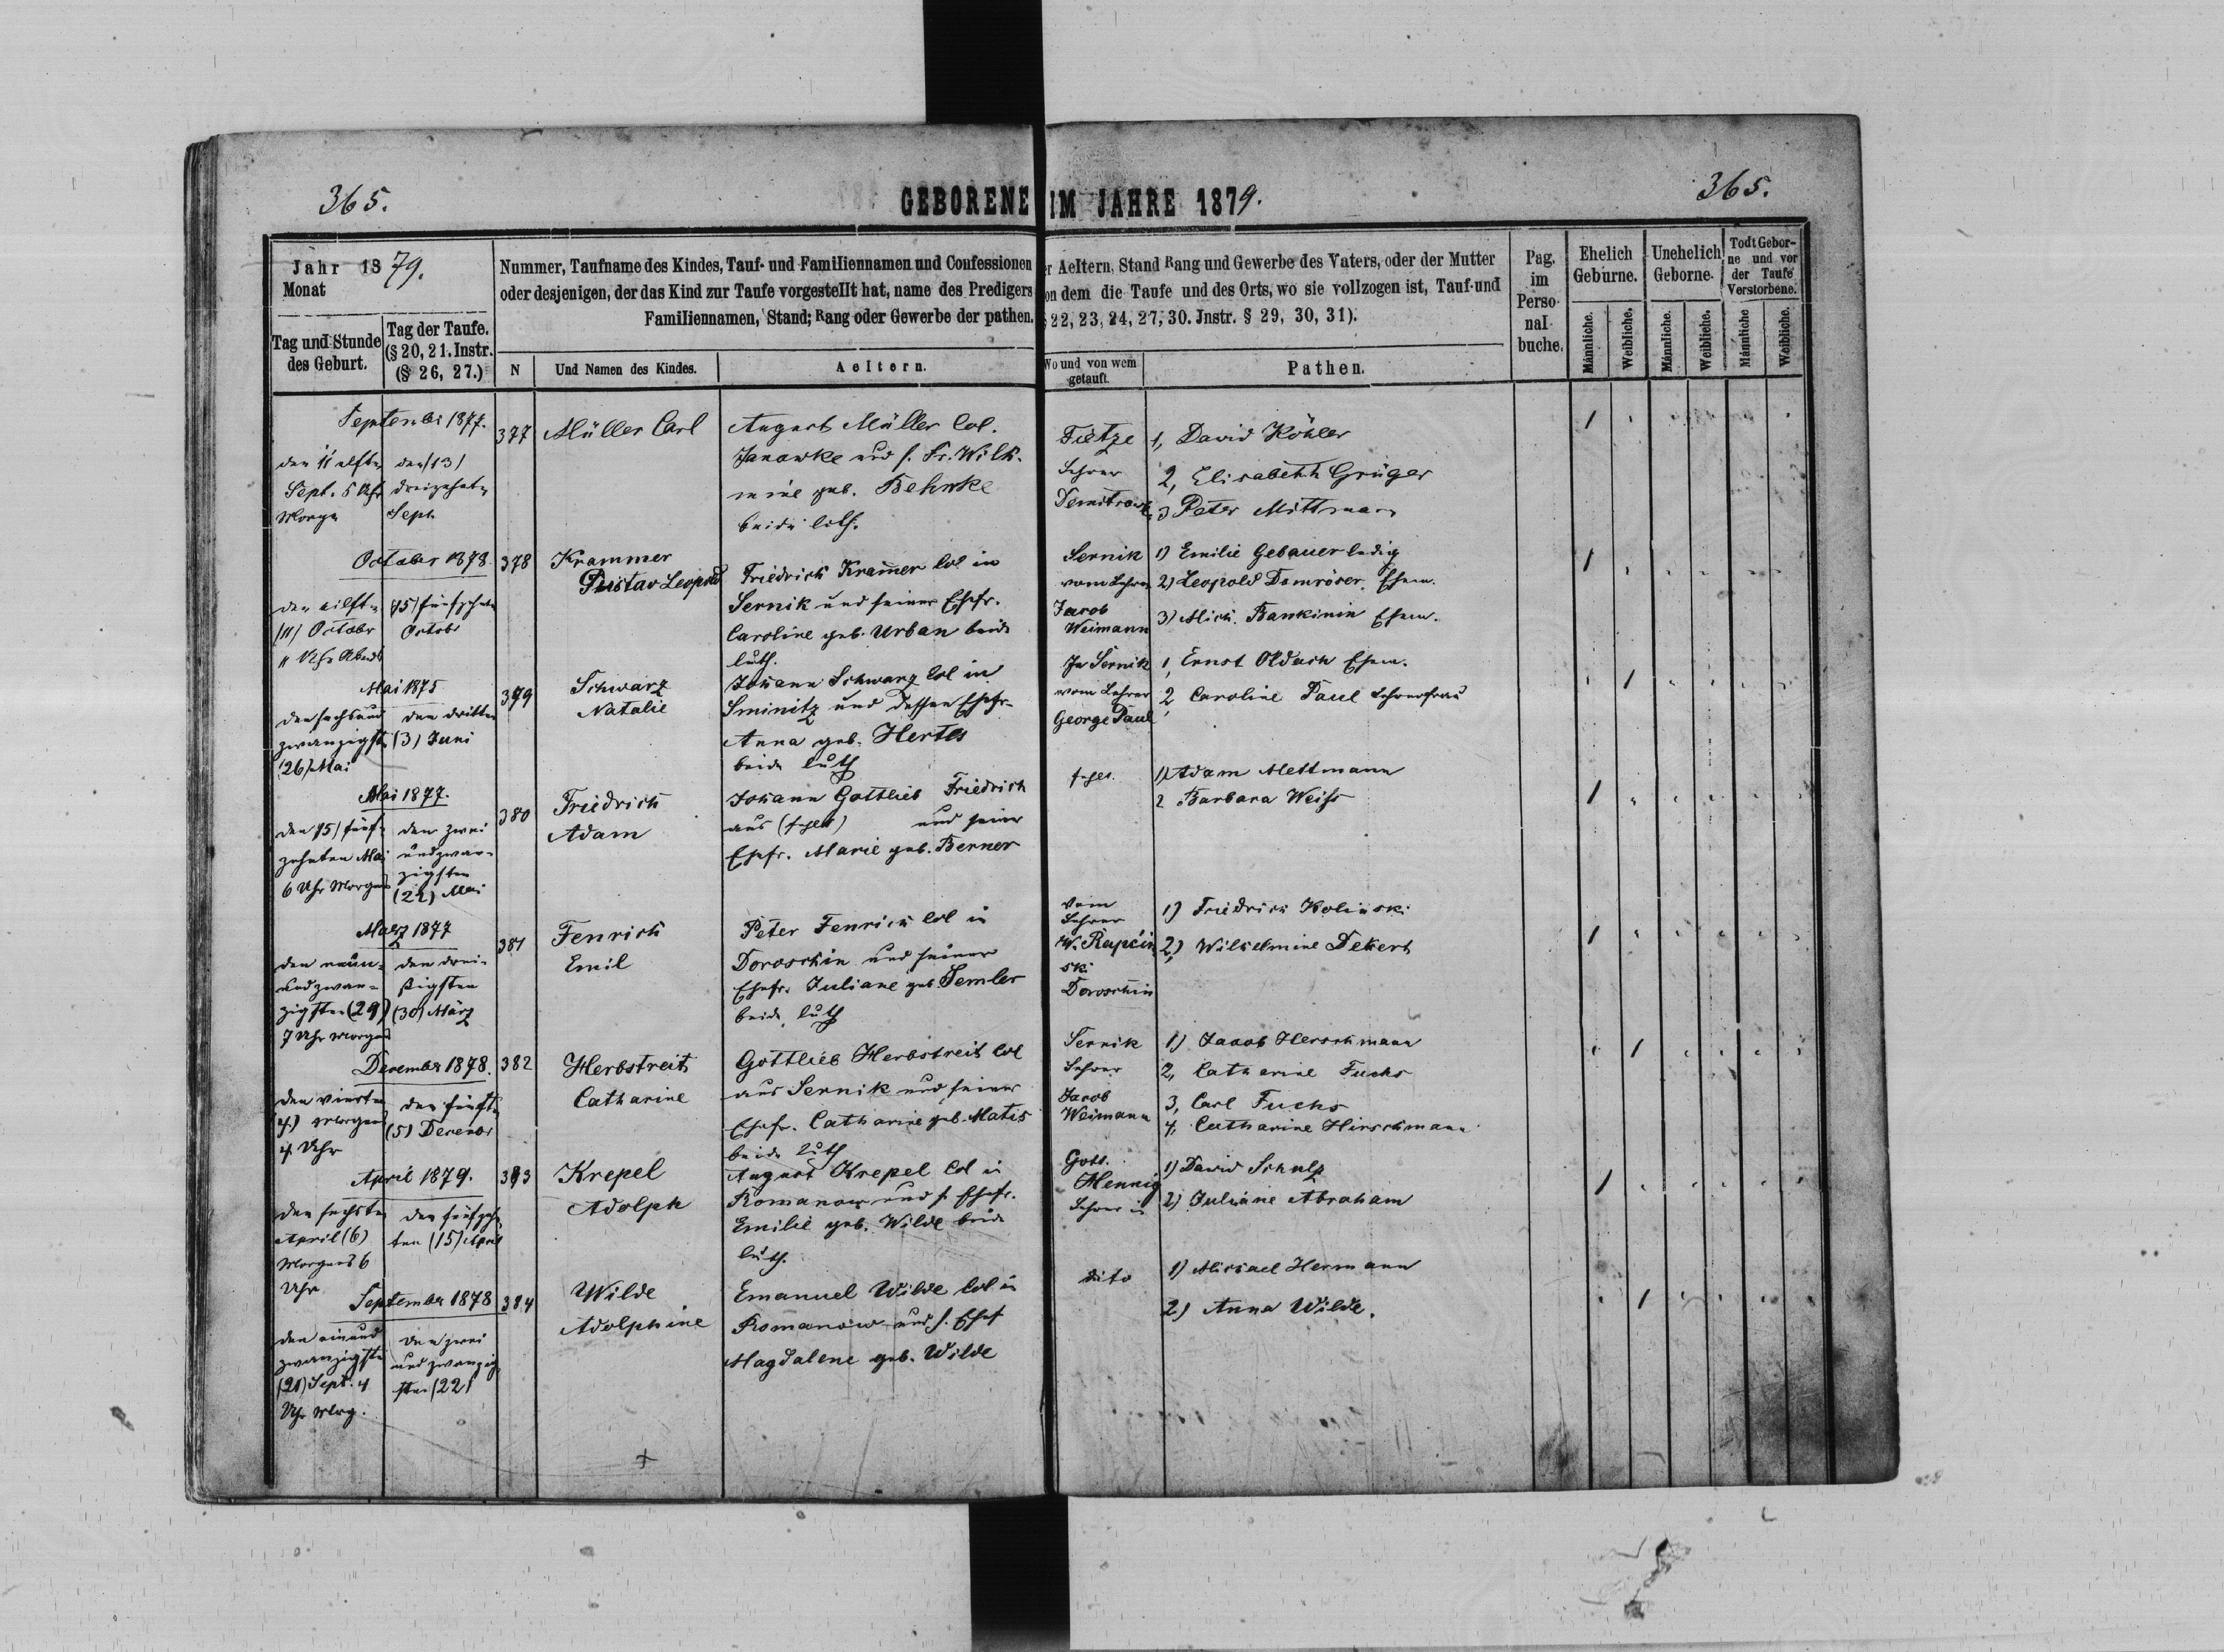 365.
GEBORENE IM JAHRE 1879.
365.
Jahr 1879.
Monat
Tag und Stunde des Geburt.
Tag der Taufe. (§ 20, 21. Instr. (§ 26, 27.)
Nummer, Taufname des Kindes, Tauf- und Familiennamen und Confessionen
er Aeltern, Stand Rang und Gewerbe des Vaters, oder der Mutter
oder desjenigen, der das Kind zur Taufe vorgestellt hat, name des Predigers
on dem die Taufe und des Orts, wo sie vollzogen ist, Tauf-und
Familiennamen, Stand; Rang oder Gewerbe der pathen.
§ 22, 23, 24, 27, 30. Jnstr. § 29, 30, 31).
N
Und Namen des Kindes.
Aeltern.
Wo und von wem getauft.
Pathen.
Pag. im Perso-nal-buche.
Ehelich Geburne.
Unehelich Geborne.
Todt Gebor-ne und vor der Taufe Verstorbene.
Männliche.
Weibliche.
Männliche.
Weibliche.
Männliche
Weibliche.
Septembr 1877.
den 11 elften
Sept. 5 Uhr
Morge
den (13)
dreizehnten
Sept.
377
Müller Carl
August Müller Col.
Janowke und s. Fr. Wilh.
mine geb. Behnke
beide luth.
Tietze
Lehrer
1, David Köhler
2, Elisabeth Grüger
3 Peter Mittmann
1
October 1878.
den eilften
(11) October
11 Uhr Abends
(15) fünfzehnten
October
378
Krammer
Gustav Leopold
Friedrich Kramer Col in
Sernik und seiner Ehefr.
Caroline geb. Urban beide
luth.
Sernik
vom Lehrer
Jacob
Weimann
1) Emilie Gebauer ledig
2) Leopold Domröser Ehem.
3) Mich. Bankinin Ehem.
1
Mai 1875
den sechsund
zwanzigsten
(26) Mai
den dritten
(3) Juni
379
Schwarz
Natalie
Johann Schwarz Col in
Sminitz und dessen Ehefr.
Anna geb. Hertes
beide luth
In Sernik
vom Lehrer
George Paul
1, Ernst Oldach Ehem.
2, Caroline Paul Lehrerfrau
1
Mai 1877.
den (15) fünf-
zehnten Mai
6 Uhr Morgens
den zwei
undzwan-
zigsten
(22) Mai
380
Friedrich
Adam
Johann Gottlieb Friedrich
aus (fehlt) und seiner
Ehefr. Marie geb. Berner
fehlt.
1) Adam Mettmann
2 Barbara Weiss
1
März 1877
den neun-
undzwan-
zigsten (29)
7 Uhr Morgens
den drei-
ßigsten
(30) März
381
Fenrich
Emil
Peter Fenrich Col in
Doroschin und seiner
Ehefr. Juliane geb. Semler
beide luth
vom
Lehrer
W. Rapcin
ski
Doroschin
1) Friedrich Kolinski
2,) Wilhelmine Dekert
1
December 1878.
den vierten
(4) Morgens
4 Uhr
den fünften
(5) December
382
Herbstreit
Catharine
Gottlieb Herbstreit Col
aus Sernik und seiner
Ehefr. Catharine geb. Matis
beide luth
Sernik
Lehrer
Jacob
Weimann
1) Jacob Herschmann
2, Catharine Fuchs
3, Carl Fuchs
4, Catharine Hirschmann
1
April 1879.
den sechsten
April (6)
Morgens 6
Uhr
den fünfzehn
ten (15) April
383
Krepel
Adolph
August Krepel Col in
Romanow und s. Ehefr.
Emilie geb. Wilde beide
luth.
Gott.
Hennig
Lehrer in
1) David Schulz
2) Juliane Abraham
1
September 1878
den einund
zwanzigsten
(21) Sept. 4
Uhr Morg.
den zwei
und zwanzig
sten (22)
384
Wilde
Adolphine
Emanuel Wilde Col in
Romanow und s. Ehef
Magdalene geb. Wilde
dito
1) Michael Hermann
2) Anna Wilde.
1